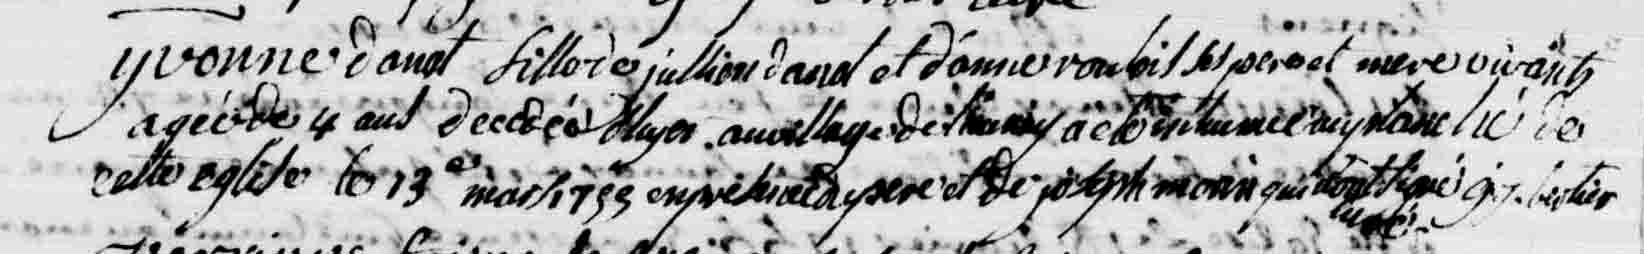 yvonne danot fille de jullien danot et d'anne roulois ses pere et mere vivants
agée de 4 ans decedée d'hyer au village de a eté inhumée au de
cette eglise le 13e mars 1755 en présence du pere et de joseph morin qui n'ont signé
curé